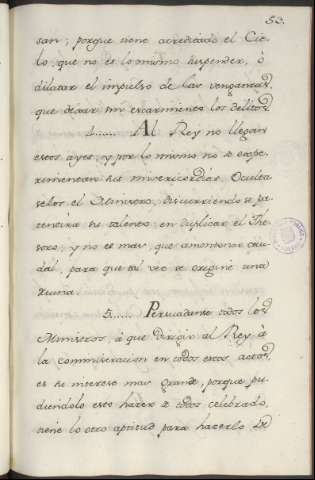 53.
san; porque tiene acreditado el Cie-
lo, que no es lo mismo suspender, ò
dilatar el impulso de las venganzas,
que dexar sin escarmiento los delitos.
4...... Al Rey no llegan
estos ayes, y por lo mismo no se expe-
rimentan sus misericordias. Oculta
selos el Ministro, discurriendo se pa-
tentiza su talento, en duplicar el The-
soro, y no es mas, que amontonar cau-
dal, para que tal vez se origine una
ruina.
5...... Persuadense todos los
Ministros, à que dirigir al Rey à
la commiseracion en todos estos actos,
es su interese mas grande, porque pu-
diendolo esto hacer de todos celebrado,
tiene lo otro aptitud para hacerlo de